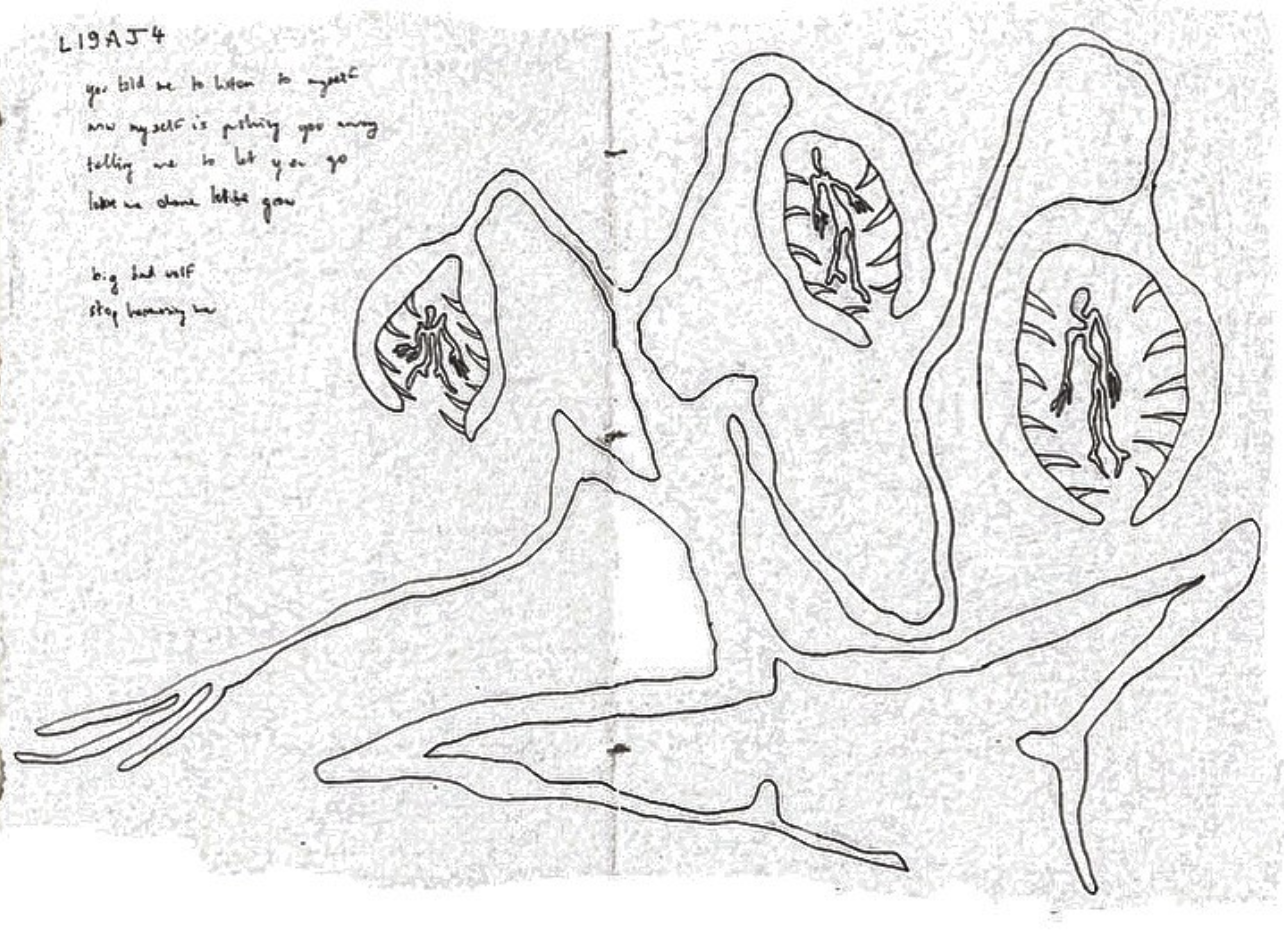 L19AJ4
you told me to listen to myself
now myself is pushing you away
telling me to let you go
leave me alone let me grow
big bad wolf
stop becoming me